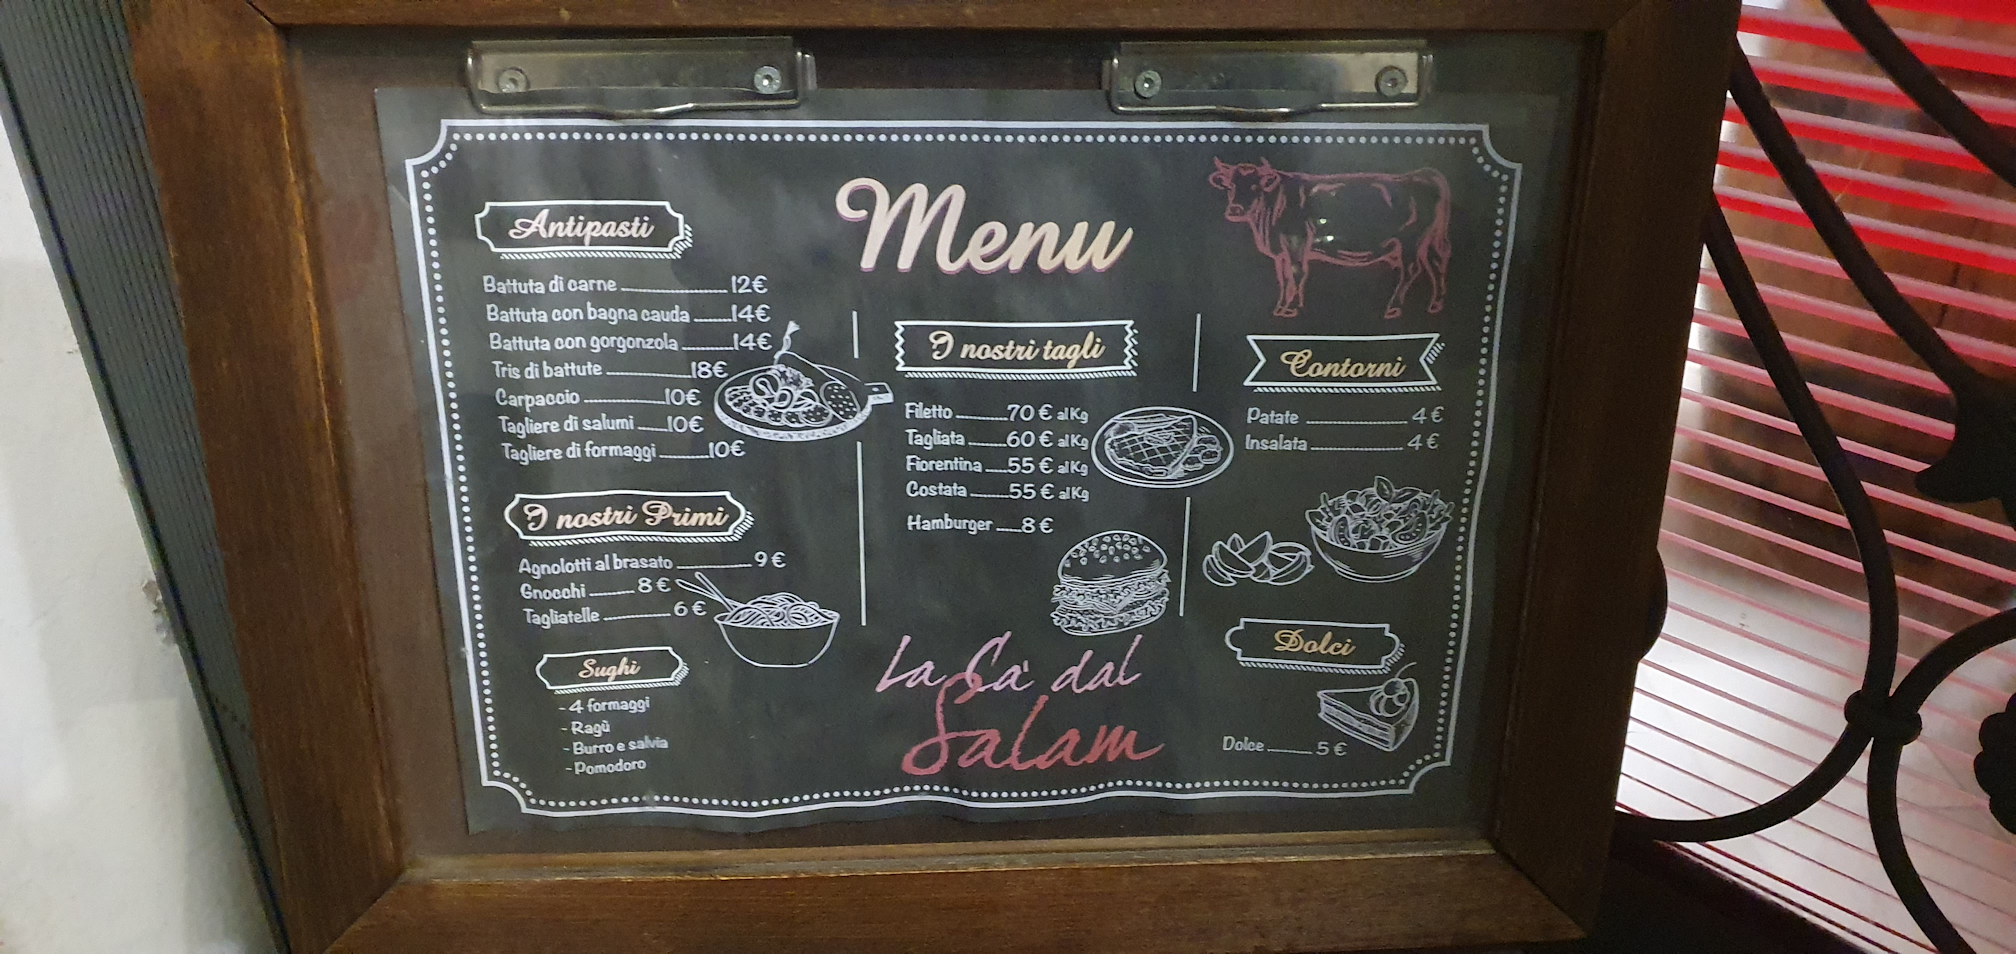 Menu
Antipasti
Battuta di carne 12€
Battuta con bagna cauda 14€
Battuta con gorgonzola 14€
Tris di battute 18€
Carpaccio 10€
Tagliere di salumi 10€
Tagliere di formaggi 10€
I nostri Primi
Agnolotti al brasato 9€
Gnocchi 8€
Tagliatelle 6€
Sughi
- 4 formaggi
- Ragù
- Burro e salvia
- Pomodoro
I nostri tagli
Filetto 70 € al Kg
Tagliata 60 € al Kg
Fiorentina 55 € al Kg
Costata 55 € al Kg
Hamburger 8 €
La Ca' dal
Salam
Contorni
Patate 4 €
Insalata 4 €
Dolci
Dolce 5 €